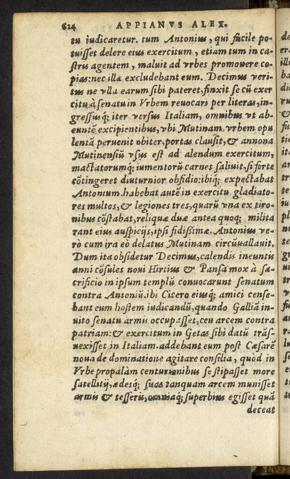 624 APPIANVS ALEX.
tu iudicaretur. tum Antonius, qui facile po
tuisset delere eius exercitum, etiam tum in ca
stris agentem, maluit ad vrbes promouere co
pias: nec illæ excludebant eum. Decimus veri
tus ne vlla earum sibi pateret, finxit se cū exer
citu à senatu in Vrbem reuocari per literas, in-
gressusq; iter versus Italiam, omnibus vt ab-
euntē excipientibus, vbi Mutinam vrbem opu
lentā peruenit obiter, portas clausit, & annona
Mutinensiū vsus est ad alendum exercitum,
mactatorumq; iumentorū carnes saliuit, si forte
cōtingeret diuturnior obsidio: ibiq; expectabat
Antonium, habebat autē in exercitu gladiato-
res multos, & legiones tres, quarū vna ex tiro-
nibus cōstabat, reliquæ duæ antea quoq; milita
rant eius auspicijs, ipsi fidissimæ. Antonius ve-
rò cum ira eò delatus Mutinam circūuallauit.
Dum ita obsidetur Decimus, calendis ineuntis
anni cōsules noui Hirtius & Pansa mox à sa-
crificio in ipsum templū conuocarunt senatum
contra Antoniū. ibi Cicero eiusq; amici cense-
bant eum hostem iudicandū, quando Galliā in-
uito senatu armis occupasset, ceu arcem contra
patriam: & exercitum in Getas sibi datū trās-
uexisset in Italiam. addebant eum post Cæsarē
noua de dominatione agitare consilia, quòd in
Vrbe propalàm centurionibus se stipasset more
satellitū, ædesq; suas tanquam arcem munisset
armis & tesseris, omniaq; superbius egisset quā
deceat